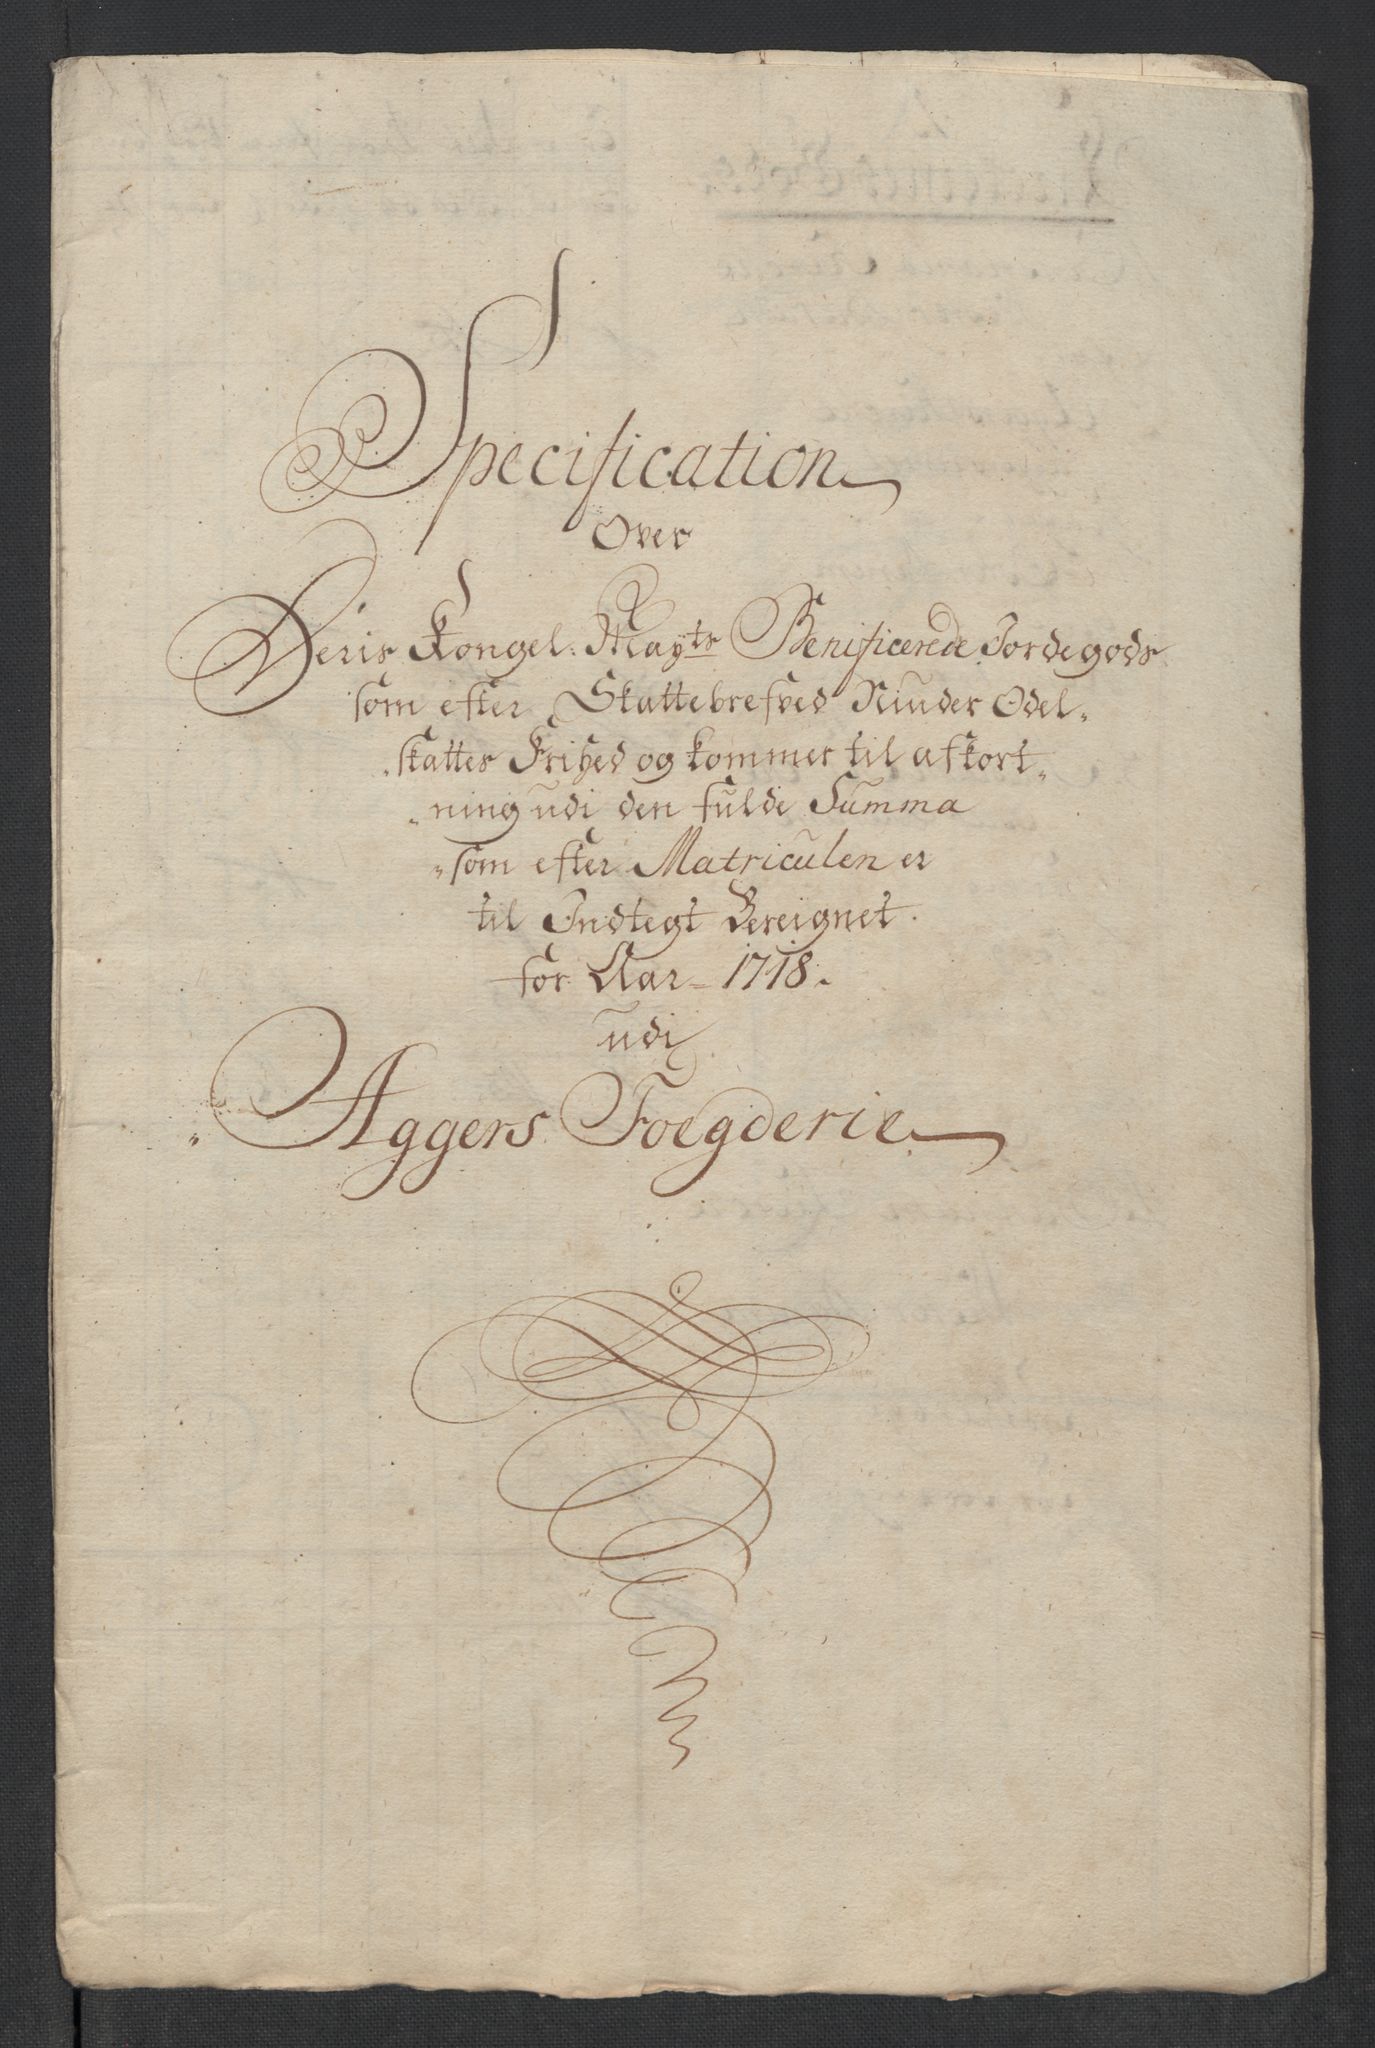 Specification
Over
Deris Kongel: Mayts Benificerede Jordegods
som efter Skattebrefved Niuder Odel„
„skattes Frihed og kommer til afkort„
„ning udi den fulde Summa
„som efter Matriculen er
til Indtegt Bereignet.
for Aar – 1718.
udi
„Aggers Foegderie